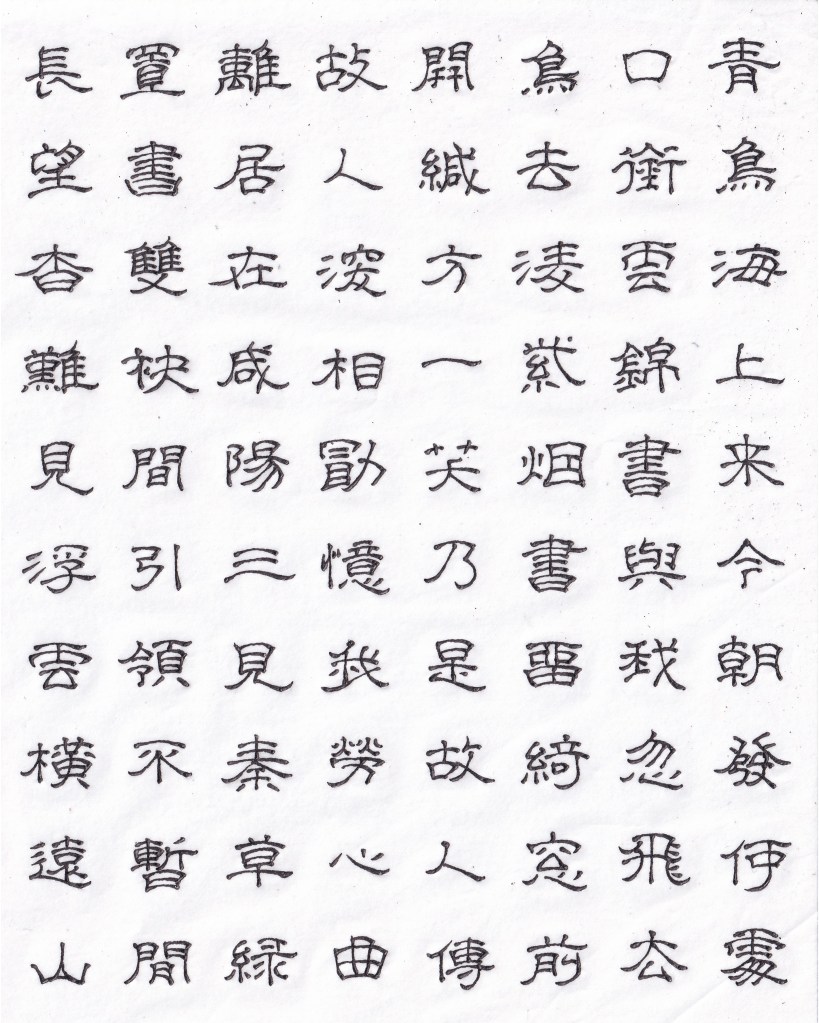 青鳥海上来今朝發何處
口銜雲錦書與我忽飛去
鳥去凌紫烟書留綺窓前
開緘方一笑乃是故人傳
故人深相勖憶我勞心曲
離居在咸陽三見秦草緑
置書雙袂間引領不暫閒
長望杳難見浮雲橫遠山